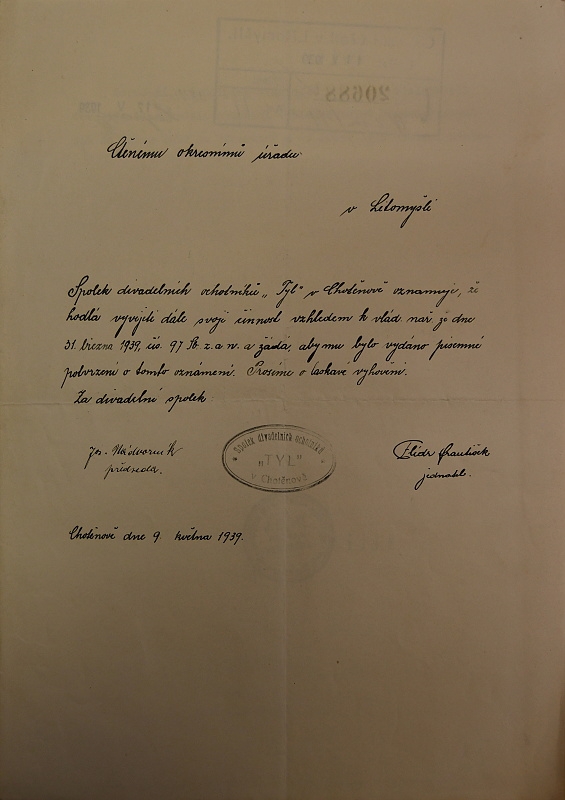 Ctěnému okresnímu úřadu
v Litomyšli
Spolek divadelních ochotníků „Tyl" v Chotěnově oznamuje, že
hodlá vyvíjeti dále svoji činnost vzhledem k vlád. nař. ze dne
31. března 1939, čís. 97 Sb. z. a n. a žádá, aby mu bylo vydáno písemné
potvrzení o tomto oznámení. Prosíme o laskavé vyhovění.
Za divadelní spolek
Jos. Nádvorník
předseda.
Spolek divadelních ochotníků
„TYL"
v Chotěnově
František
jednatel.
Chotěnově dne 9. května 1939.
20688